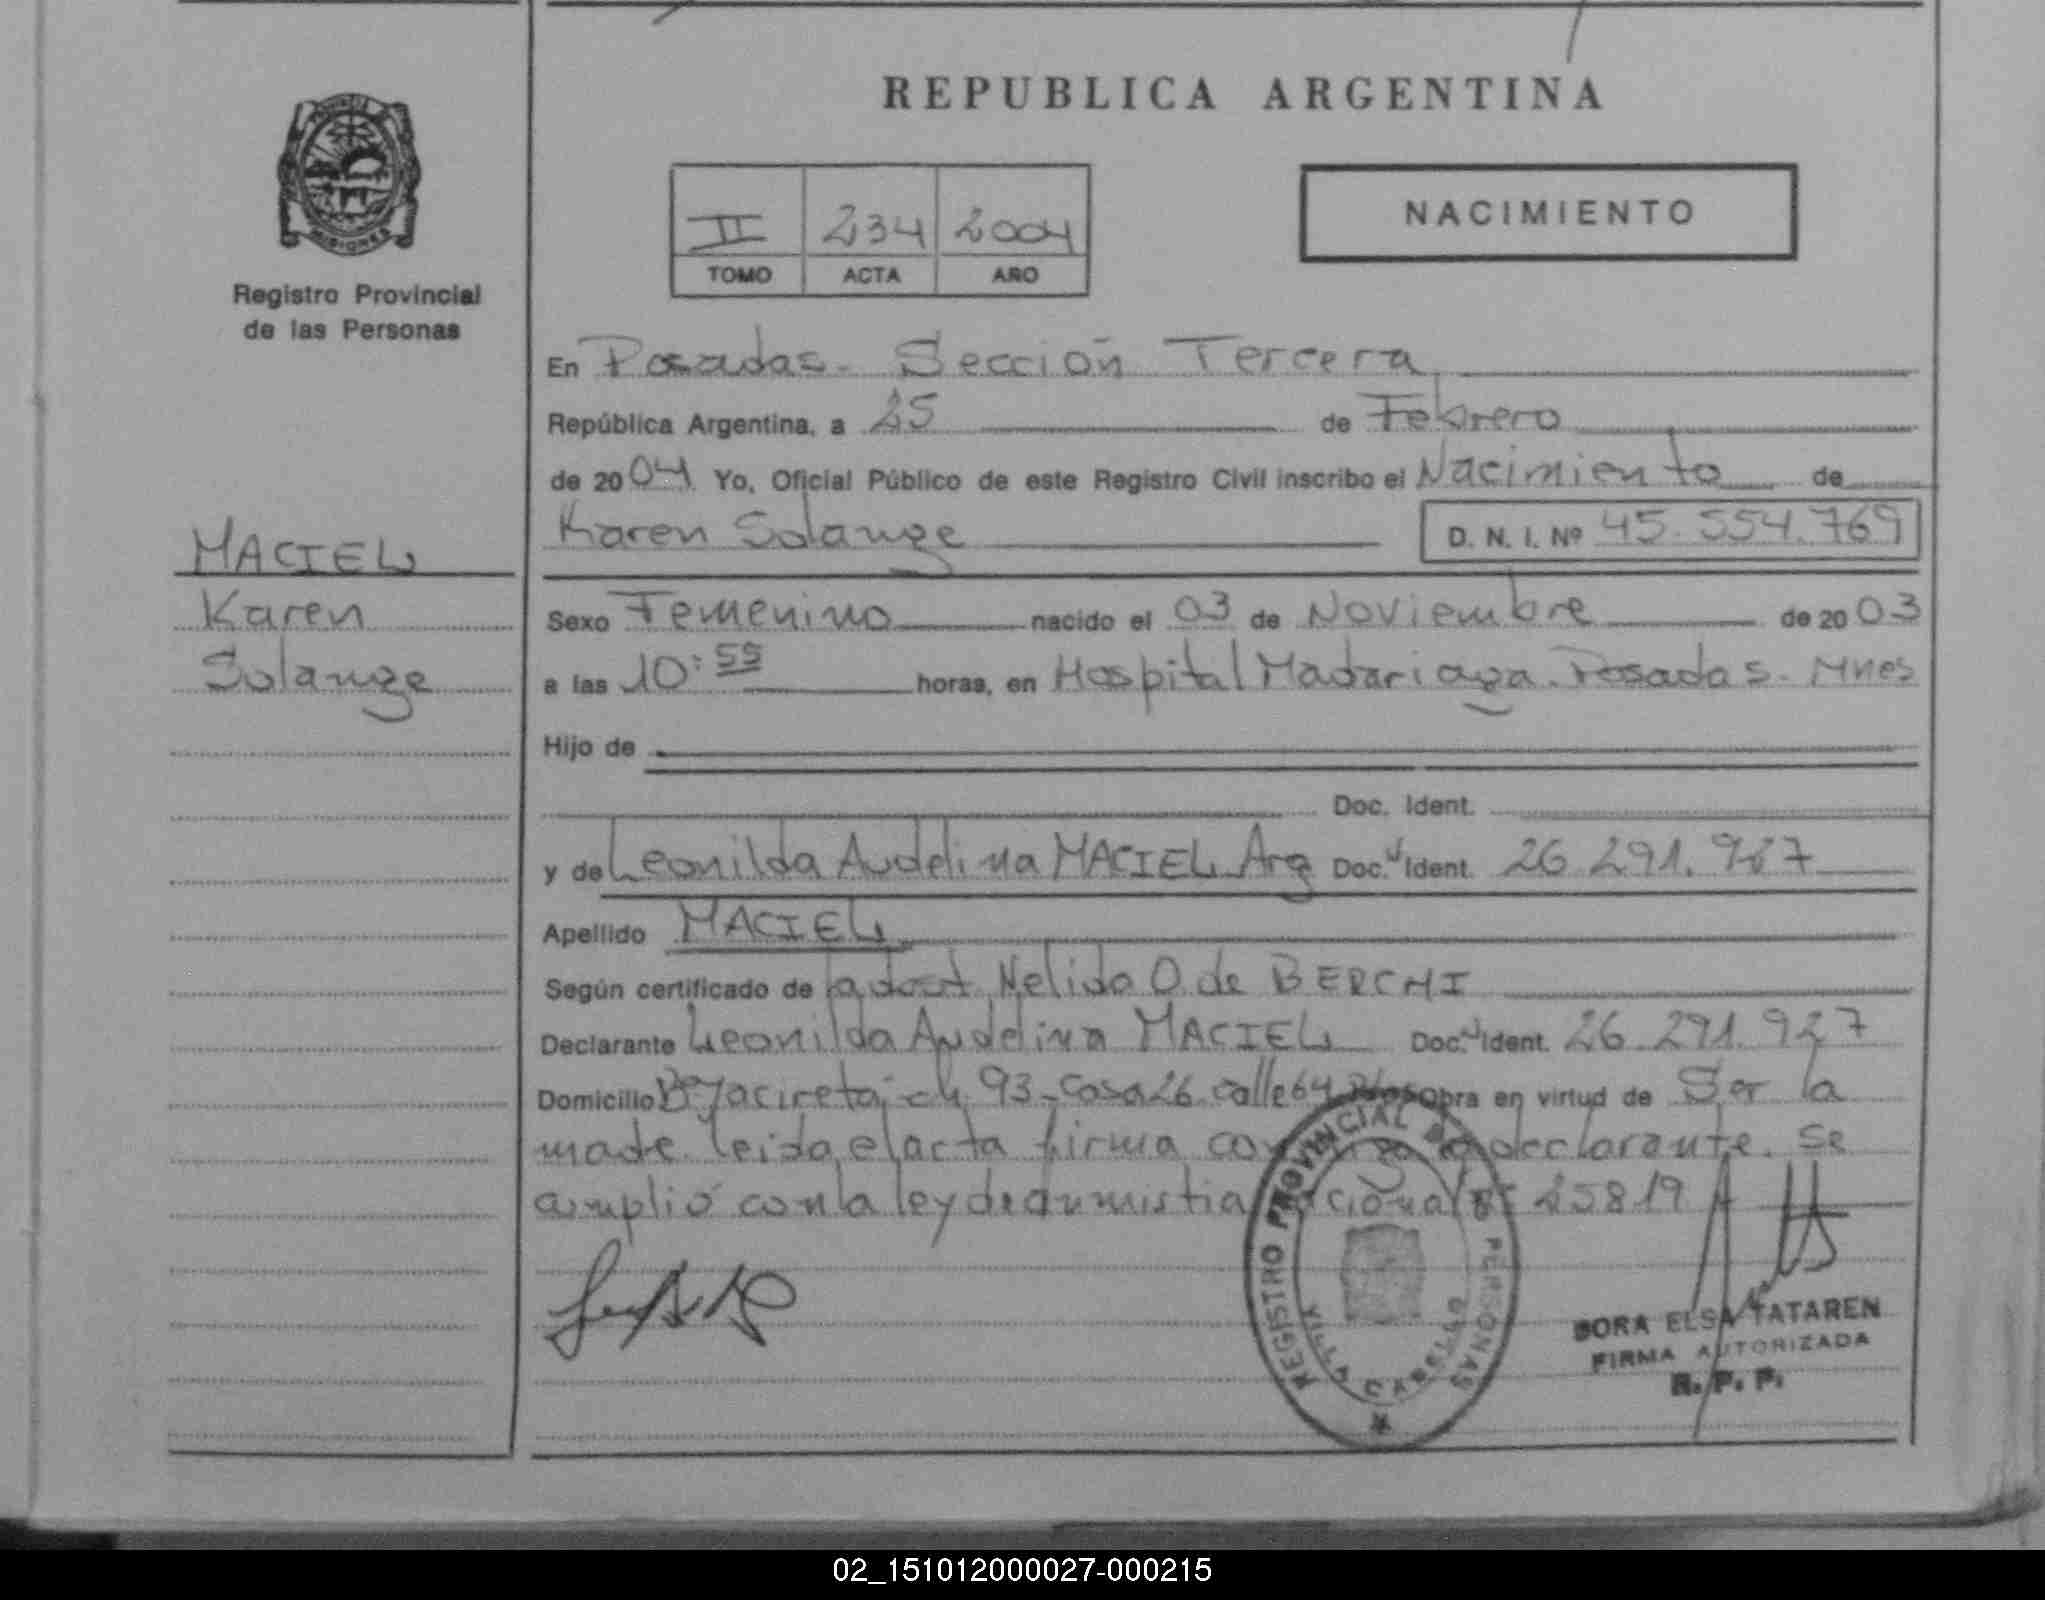 REPUBLICA ARGENTINA
MISIONES
Registro Provincial
de las Personas
II 234 2004
TOMO ACTA AÑO
NACIMIENTO
En Posadas - Sección Tercera
República Argentina, a 25 de Febrero
de 2004 Yo, Oficial Público de este Registro Civil inscribo el Nacimiento de
Karen Solange D. N. I. Nº 45.554.769
MACIEL
Karen
Solange
Sexo Femenino nacido el 03 de Noviembre de 2003
a las 10:55 horas, en Hospital Madariaga. Posadas. Mnes
Hijo de
Doc. Ident.
y de Leonilda Audelina MACIEL Arg Doc. Ident. 26.291.927
Apellido MACIEL
Según certificado de la obst Nelida O. de BERCHI
Declarante Leonilda Audelina MACIEL Doc. Ident. 26.291.927
Domicilio Bº Yacireta ch 93 - Casa 26 calle 64 Obra en virtud de Ser la
madre. leida el acta firma declarante. se
cumplió con la ley de amnistia 25819
REGISTRO PROVINCIAL PERSONAS
VILLA CABELLO
DORA ELSA TATAREN
FIRMA AUTORIZADA
R. P. P.
02_151012000027-000215